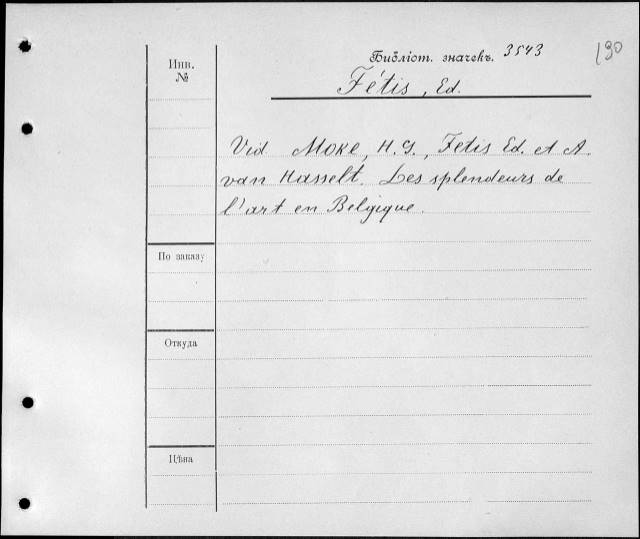 Библіот. значекъ. 3543
190
Инв.
№
Fétis, Ed.
Vid Moke, H. G., Fetis Ed. et A.
van Hasselt. Les splendeurs de
l'art en Belgique.
По заказу
Откуда
Цѣна